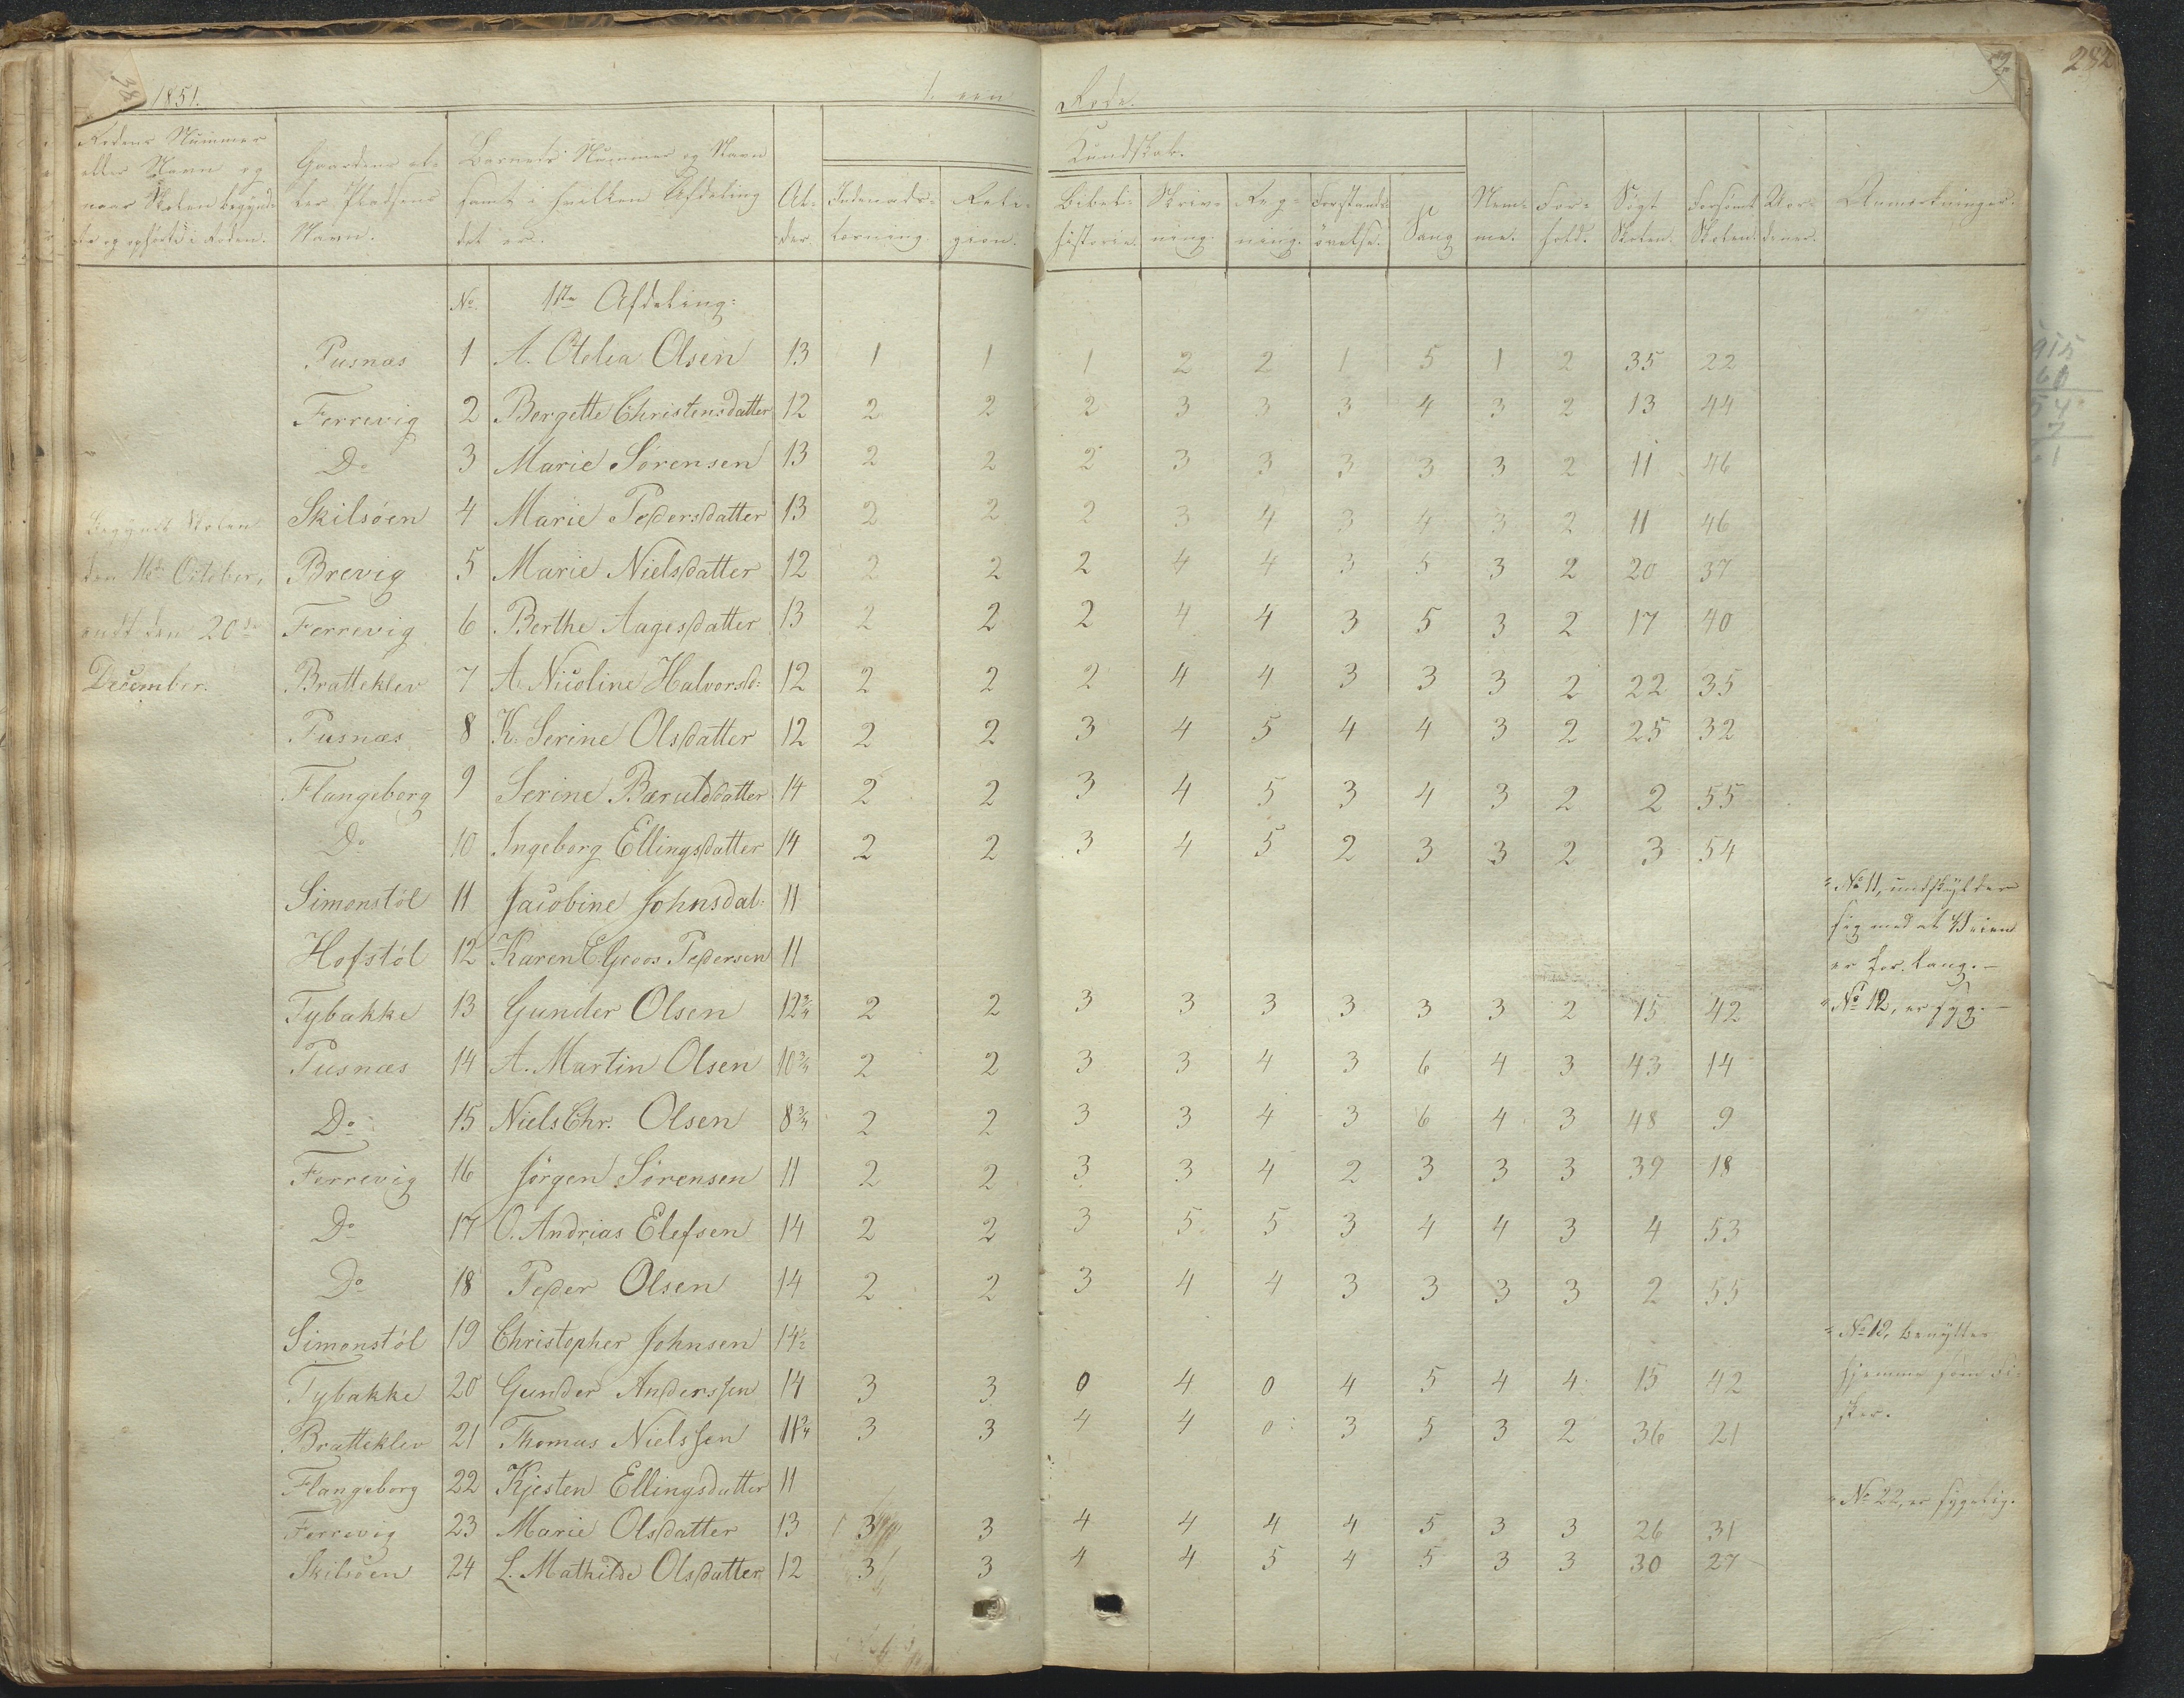 1851.
Rode.
282
Rodens Nummer
eller Navn og
naar Skolen begynd-
te og ophørte i Roden.
Gaardens el-
ler Pladsens
Navn.
Barnets Nummer og Navn
samt i hvilken Afdeling
det er.
Al-
der.
Kundskab.
Indenads-
læsning.
Reli-
gion.
Bibel-
historie.
Skriv-
ning.
Reg-
ning.
Forstands-
øvelse.
Sang
Nem-
me.
For-
hold.
Søgt
Skolen.
Forsømt
Skolen.
Anmærkninger.
No. 1ste Afdeling:
Pusnæs 1 A. Otelia Olsen 13 1 1 1 2 2 1 5 1 2 35 22
Ferrevig 2 Bergette Christensdatter 12 2 2 2 3 3 3 4 3 2 13 44
Do 3 Marie Sørensen 13 2 2 2 3 3 3 3 3 2 11 46
Skilsøen 4 Marie Pedersdatter 13 2 2 2 3 4 3 4 3 2 11 46
Brevig 5 Marie Nielsdatter 12 2 2 2 4 4 3 5 3 2 20 37
Ferrevig 6 Berthe Aagesdatter 13 2 2 2 4 4 3 5 3 2 17 40
Bratteklev 7 A. Nicoline Halvorsd: 12 2 2 2 4 4 3 3 3 2 22 35
Pusnæs 8 K. Serine Olsdatter 12 2 2 3 4 5 4 4 3 2 25 32
Flangeborg 9 Serine Bærulddatter 14 2 2 3 4 5 3 4 3 2 2 55
Do 10 Ingeborg Ellingsdatter 14 2 2 3 4 5 2 3 3 2 3 54
Simonstøl 11 Jacobine Johnsdat: 11
Hofstøl 12 Karen E Groos Pedersen 11
Tybakke 13 Gunder Olsen 12¾ 2 2 3 3 3 3 3 3 2 15 42
Pusnæs 14 A. Martin Olsen 10¾ 2 2 3 3 4 3 6 4 3 43 14
Do 15 Niels Chr. Olsen 8¾ 2 2 3 3 4 3 6 4 3 48 9
Ferrevig 16 Jørgen Sørensen 11 2 2 3 3 4 2 3 3 3 39 18
Do 17 O. Andrias Elefsen 14 2 2 3 5 5 3 4 4 3 4 53
Do 18 Peder Olsen 14 2 2 3 4 4 3 3 3 3 2 55
Simonstøl 19 Christopher Johnsen 14½
Tybakke 20 Gunder Anderssen 14 3 3 0 4 0 4 5 4 4 15 42
Bratteklev 21 Thomas Nielssen 11¾ 3 3 4 4 0 3 5 3 2 36 21
Flangeborg 22 Kjesten Ellingsdatter 11
Ferrevig 23 Marie Olsdatter 13 3 3 4 4 4 4 5 3 3 26 31
Skilsøen 24 L. Mathilde Olsdatter 12 3 3 4 4 5 4 5 3 3 30 27
Begynt Skolen
den 16de October,
endt den 20de
December.
No 11, undskylder
sig med at Veien
er for lang.-
No 12, er syg.-
benyttes
hjemme som Fi-
sker.
No 22, er sygelig.
915
60